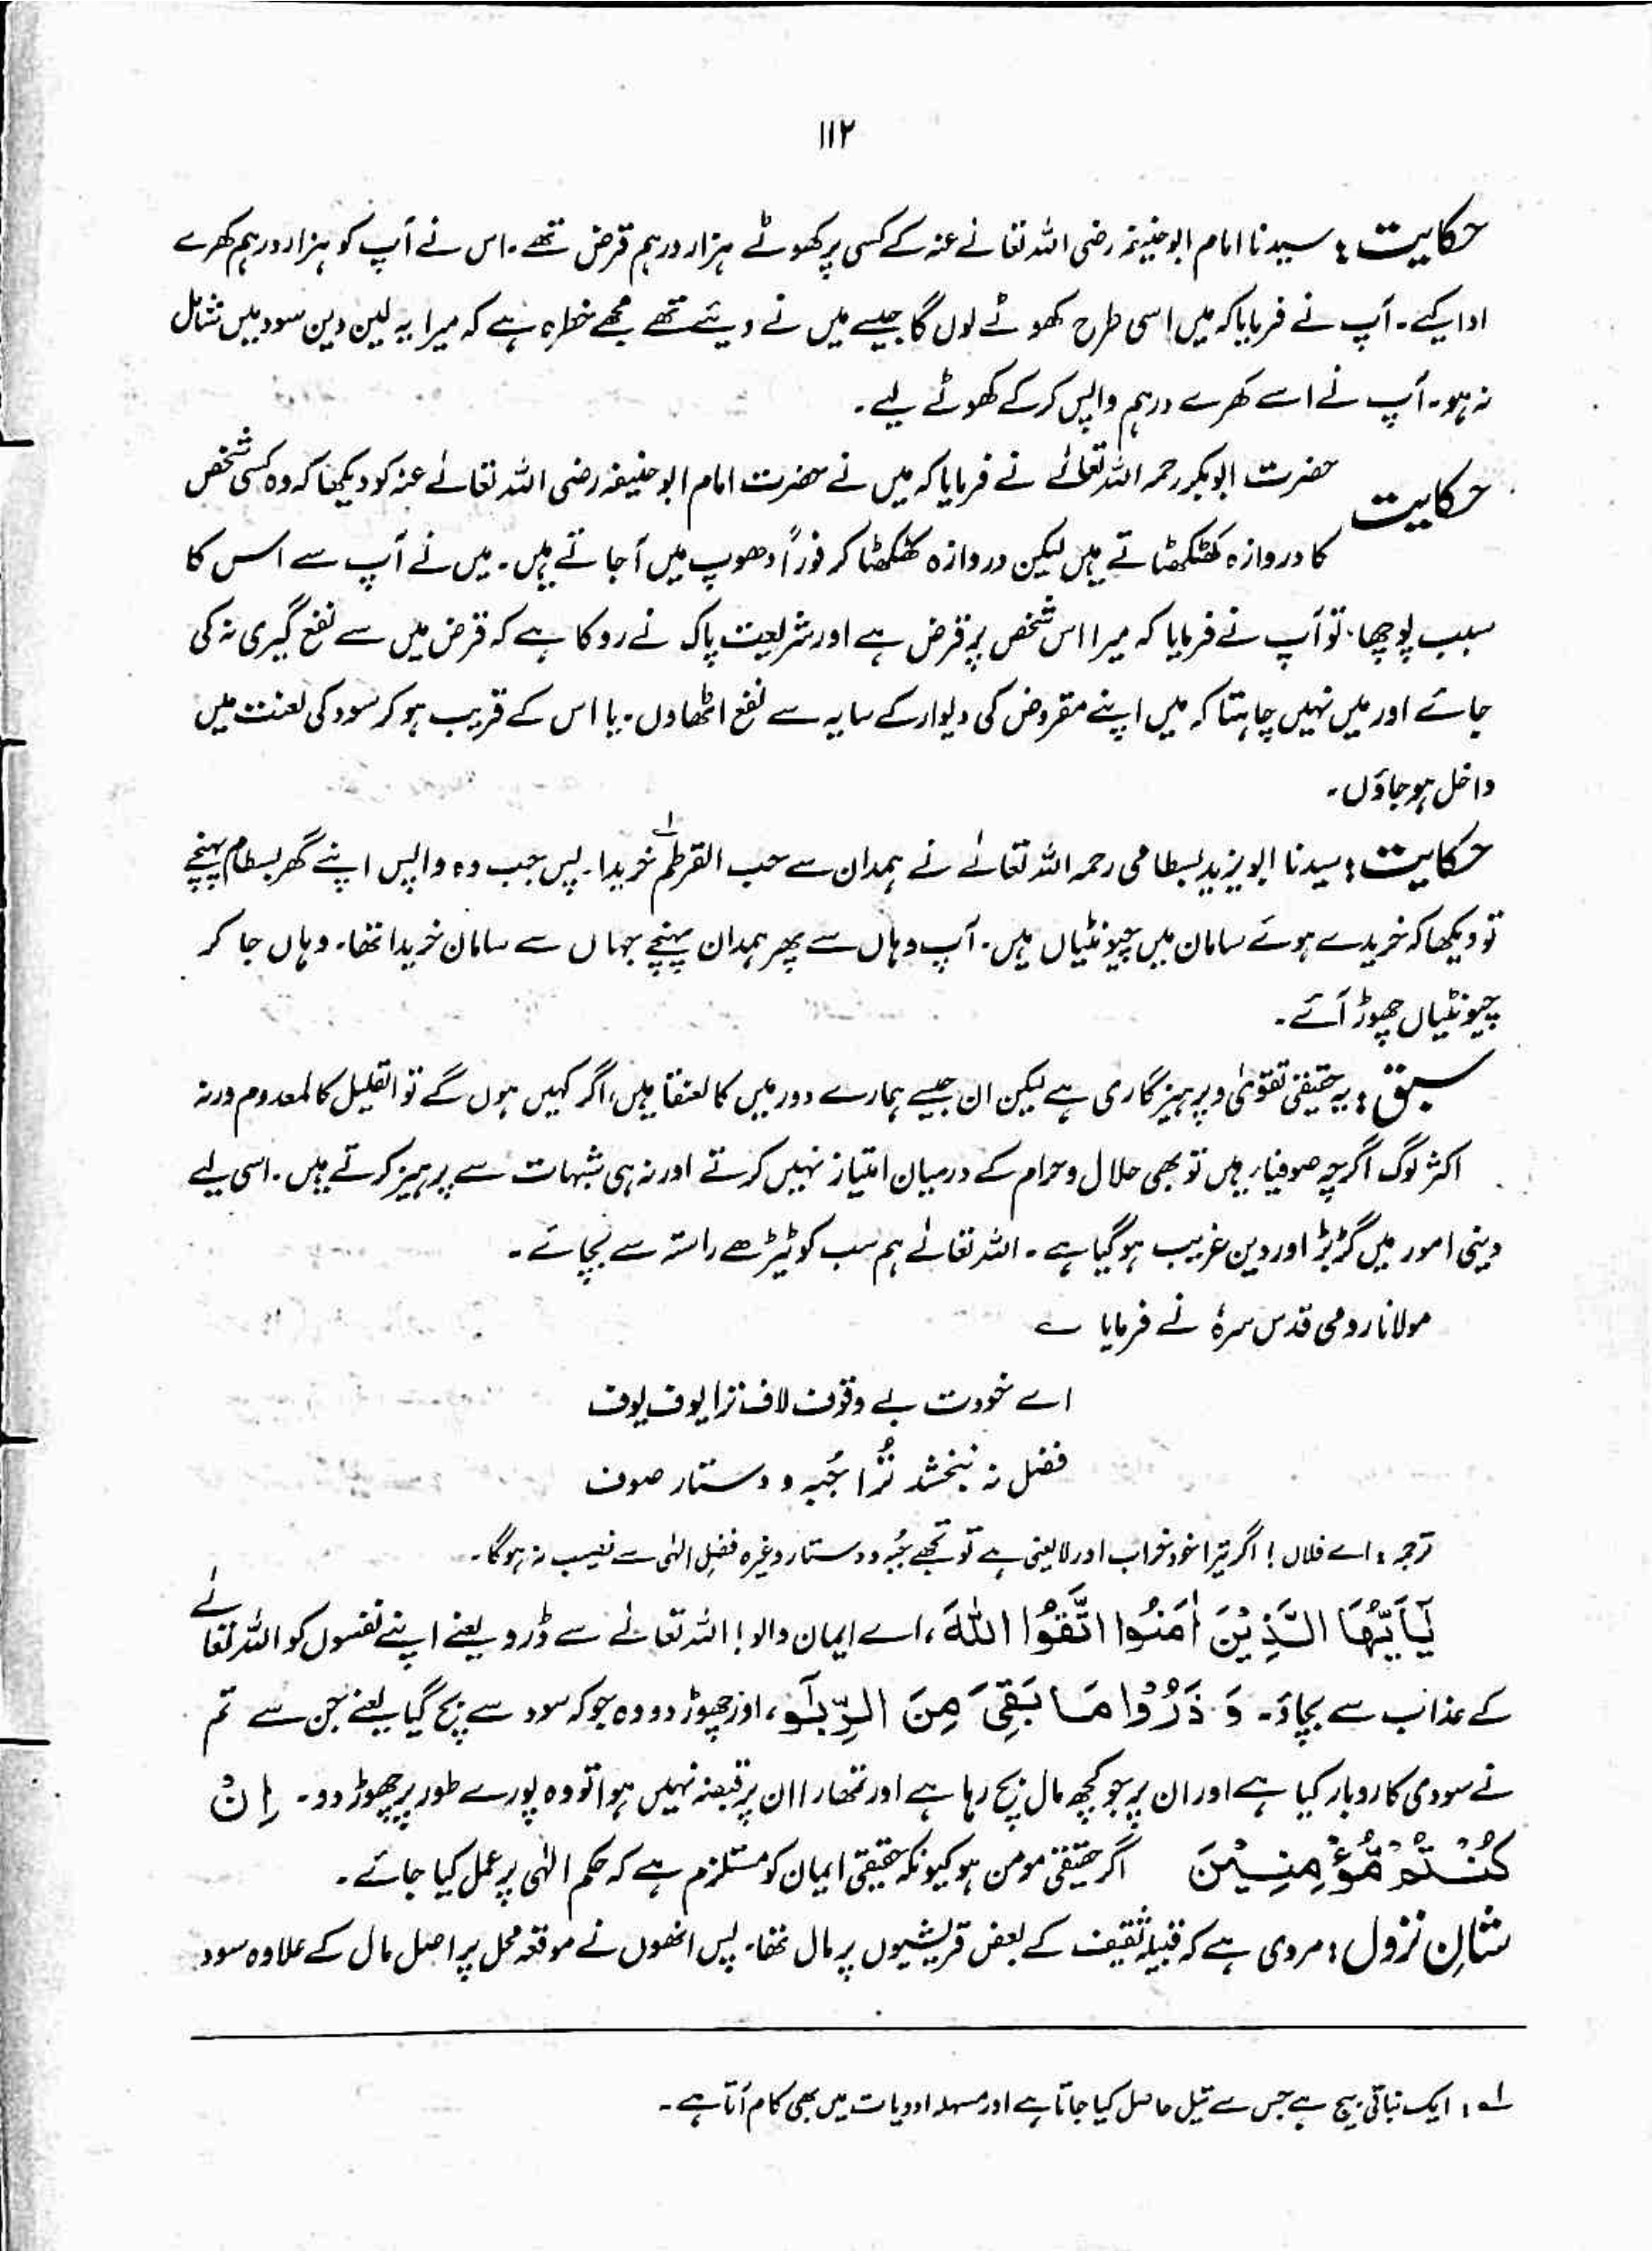 ۱۱۲
حکایت : سیدنا امام ابو حنیفہ رضی اللہ تعالٰے عنہ کے کسی پر کھوٹے ہزار درہم قرض تھے۔ اس نے آپ کو ہزار درہم کھرے
ادا کیے۔ آپ نے فرمایا کہ میں اسی طرح کھوٹے لوں گا جیسے میں نے دیئے تھے مجھے خطرہ ہے کہ میرا یہ لین دین سود میں شامل
نہ ہو۔ آپ نے اسے کھرے درہم واپس کرکے کھوٹے لیے۔
حکایت حضرت ابوبکر رحمہ اللہ تعالٰے نے فرمایا کہ میں نے حضرت امام ابو حنیفہ رضی اللہ تعالٰے عنہ کو دیکھا کہ وہ کسی شخص
کا دروازہ کھٹکھٹاتے ہیں لیکن دروازہ کھٹکھٹا کر فوراً دھوپ میں آجاتے ہیں۔ میں نے آپ سے اس کا
سبب پوچھا، تو آپ نے فرمایا کہ میرا اس شخص پر قرض ہے اور شریعت پاک نے روکا ہے کہ قرض میں سے نفع گیری نہ کی
جائے اور میں نہیں چاہتا کہ میں اپنے مقروض کی دیوار کے سایہ سے نفع اٹھاؤں۔ یا اس کے قریب ہو کر سود کی لعنت میں
داخل ہو جاؤں۔
حکایت : سیدنا ابویزید بسطامی رحمہ اللہ تعالٰے نے ہمدان سے حب القرطم لہ خریدا۔ پس جب وہ واپس اپنے گھر بسطام پہنچے
تو دیکھا کہ خریدے ہوئے سامان میں چیونٹیاں ہیں۔ آپ وہاں سے پھر ہمدان پہنچے جہاں سے سامان خریدا تھا۔ وہاں جا کر
چیونٹیاں چھوڑ آئے۔
سبق : یہ حقیقی تقویٰ و پرہیزگاری ہے لیکن ان جیسے ہمارے دور میں کالعنقا ہیں، اگر کہیں ہوں گے تو القلیل کالمعدوم ورنہ
اکثر لوگ اگرچہ صوفیاء ہیں تو بھی حلال و حرام کے درمیان امتیاز نہیں کرتے اور نہ ہی شبہات سے پرہیز کرتے ہیں۔ اسی لیے
دینی امور میں گڑبڑ اور دین غریب ہو گیا ہے۔ اللہ تعالٰے ہم سب کو ٹیڑھے راستہ سے بچائے۔
مولانا رومی قدس سرہٗ نے فرمایا ؎
اے خودت بے وقوف لاف ترا یوف یوف
فضل نہ بخشد تُرا جُبہ و دستار صوف
ترجمہ : اے فلاں ! اگر تیرا خود خراب اور لایعنی ہے تو تجھے جُبہ و دستار وغیرہ فضلِ الٰہی سے نصیب نہ ہوگا۔
يَٰۤاَيُّهَا الَّذِيْنَ اٰمَنُوا اتَّقُوا اللّٰهَ ، اے ایمان والو ! اللہ تعالٰے سے ڈرو یعنے اپنے نفسوں کو اللہ تعالٰے
کے عذاب سے بچاؤ۔ وَ ذَرُوْا مَا بَقِیَ مِنَ الرِّبٰٓو ، اور چھوڑ دو وہ جو کہ سود سے بچ گیا یعنے جن سے تم
نے سودی کاروبار کیا ہے اور ان پر جو کچھ مال بچ رہا ہے اور تمھارا ان پر قبضہ نہیں ہوا تو وہ پورے طور پر چھوڑ دو۔ اِنْ
كُنْتُمْ مُّؤْمِنِيْنَ اگر حقیقی مومن ہو کیونکہ حقیقی ایمان کو مستلزم ہے کہ حکم الٰہی پر عمل کیا جائے۔
شانِ نزول : مروی ہے کہ قبیلہ ثقیف کے بعض قریشیوں پر مال تھا۔ پس انھوں نے موقعہ محل پر اصل مال کے علاوہ سود
لہ : ایک نباتی بیج ہے جس سے تیل حاصل کیا جاتا ہے اور مسہلہ ادویات میں بھی کام آتا ہے۔